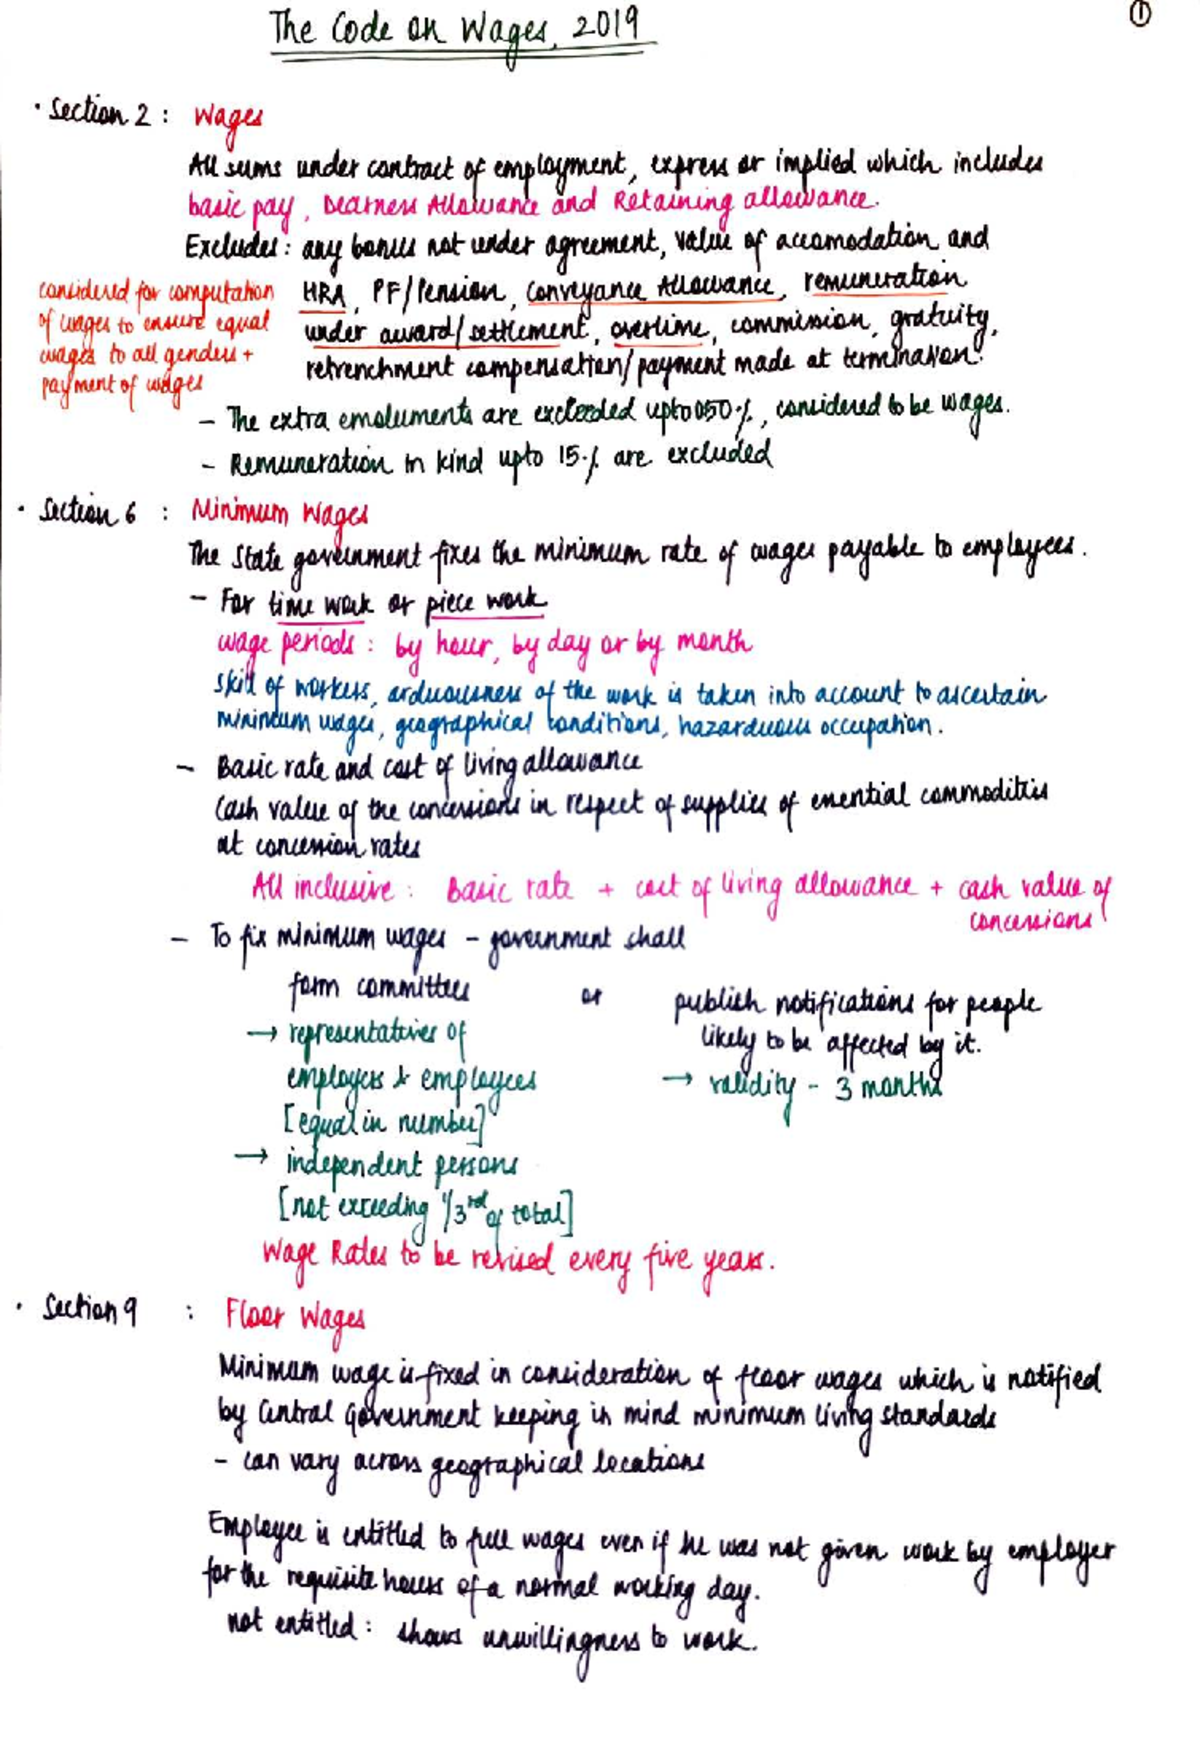 The Code on Wages, 2019
①
· Section 2 : Wages
All sums under contract of employment, express or implied which includes
basic pay, Dearness Allowance and Retaining allowance.
Excludes : any bonus not under agreement, value of accomodation and
HRA, PF/Pension, Conveyance Allowance, remuneration
under award/settlement, overtime, commission, gratuity,
retrenchment compensation/payment made at termination.
considered for computation
of wages to ensure equal
wages to all genders +
payment of wages
- The extra emoluments are excluded upto 50%, considered to be wages.
- Remuneration in kind upto 15% are excluded
· Section 6 : Minimum Wages
The State government fixes the minimum rate of wages payable to employees.
- For time work or piece work
wage periods : by hour, by day or by month
skill of workers, arduousness of the work is taken into account to ascertain
minimum wages, geographical conditions, hazarduous occupation.
- Basic rate and cost of living allowance
Cash value of the concessions in respect of supplies of essential commodities
at concession rates
All inclusive : Basic rate + cost of living allowance + cash value of
concessions
- To fix minimum wages - government shall
form committees or publish notifications for people
likely to be affected by it.
→ representatives of
employers & employees
[equal in number]
→ validity - 3 months
→ independent persons
[not exceeding 1/3rd of total]
Wage Rates to be revised every five years.
· Section 9 : Floor Wages
Minimam wage is fixed in consideration of floor wages which is notified
by Central Government keeping in mind minimum living standards
- can vary across geographical locations
Employee is entitled to full wages even if he was not given work by employer
for the requisite hours of a normal working day.
not entitled : shows unwillingness to work.